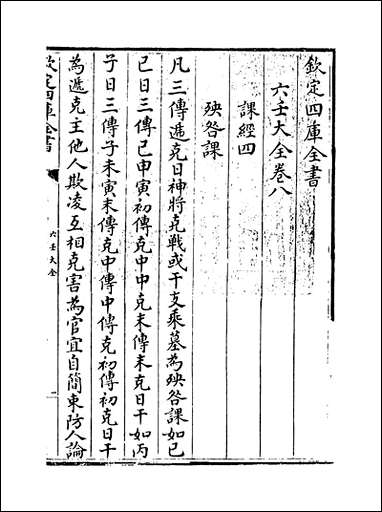 欽定四庫全書
六壬大全卷八
課經四
殃咎課
凡三傳遞克日神將克戰或干支乘墓為殃咎課如已
巳日三傳巳申寅初傳克中中克末傳末克日干如丙
子日三傳子未寅末傳克中傳中傳克初傳初克日干
為遞克主他人欺凌互相克害為官宜自簡束防人論
欽定四庫全書
六壬大全
一